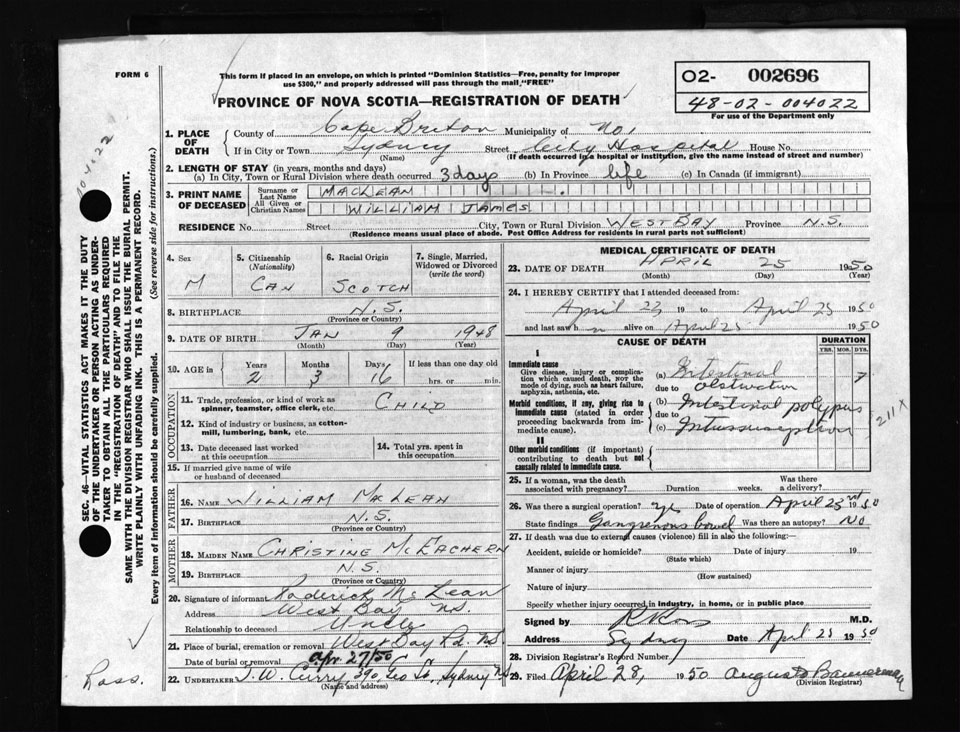 FORM 6
This form if placed in an envelope, on which is printed "Dominion Statistics—Free, penalty for improper
use $300," and properly addressed will pass through the mail "FREE"
PROVINCE OF NOVA SCOTIA—REGISTRATION OF DEATH
O2- 002696
48-02-004022
For use of the Department only
1. PLACE OF DEATH
County of Cape Breton Municipality of No 1
If in City or Town Sydney Street City Hospital House No.
(Name) (If death occurred in a hospital or institution, give the name instead of street and number)
2. LENGTH OF STAY (in years, months and days)
(a) In City, Town or Rural Division where death occurred 3 days (b) In Province life (c) In Canada (if immigrant)
3. PRINT NAME OF DECEASED
Surname or Last Name MACLEAN
All Given or Christian Names WILLIAM JAMES
RESIDENCE No. Street City, Town or Rural Division WEST BAY Province N.S.
(Residence means usual place of abode. Post Office Address for residents in rural parts not sufficient)
SEC. 46—VITAL STATISTICS ACT MAKES IT THE DUTY
OF THE UNDERTAKER OR PERSON ACTING AS UNDER-
TAKER TO OBTAIN ALL THE PARTICULARS REQUIRED
IN THE "REGISTRATION OF DEATH" AND TO FILE THE
SAME WITH THE DIVISION REGISTRAR WHO SHALL ISSUE THE BURIAL PERMIT.
WRITE PLAINLY WITH UNFADING INK. THIS IS A PERMANENT RECORD.
Every item of information should be carefully supplied. (See reverse side for instructions.)
4. Sex
M
5. Citizenship (Nationality)
CAN
6. Racial Origin
SCOTCH
7. Single, Married, Widowed or Divorced (write the word)
8. BIRTHPLACE N.S.
(Province or Country)
9. DATE OF BIRTH JAN 9 1948
(Month) (Day) (Year)
10. AGE in Years 2 Months 3 Days 16 If less than one day old
hrs. or min.
OCCUPATION
11. Trade, profession, or kind of work as
spinner, teamster, office clerk, etc. CHILD
12. Kind of industry or business, as cotton-
mill, lumbering, bank, etc.
13. Date deceased last worked
at this occupation
14. Total yrs. spent in
this occupation
15. If married give name of wife
or husband of deceased
FATHER
16. NAME WILLIAM MCLEAN
17. BIRTHPLACE N.S.
(Province or Country)
MOTHER
18. MAIDEN NAME CHRISTINE MCEACHERN
19. BIRTHPLACE N.S.
(Province or Country)
20. Signature of informant Roderick McLean
Address West Bay N.S.
Relationship to deceased Uncle
21. Place of burial, cremation or removal West Bay Rd. N.S.
Date of burial or removal Apr. 27/50
22. UNDERTAKER T. W. Curry, 390 Geo St., Sydney N.S.
(Name and address)
MEDICAL CERTIFICATE OF DEATH
23. DATE OF DEATH APRIL 25 1950
(Month) (Day) (Year)
24. I HEREBY CERTIFY that I attended deceased from:
April 23 19 to April 25 1950
and last saw h alive on April 25 1950
CAUSE OF DEATH
DURATION
YRS. MOS. DYS.
I
Immediate cause
Give disease, injury or complica-
tion which caused death, NOT the
mode of dying, such as heart failure,
asphyxia, asthenia, etc.
(a) Intestinal 7
due to obstruction
Morbid conditions, if any, giving rise to
immediate cause (stated in order
proceeding backwards from im-
mediate cause).
(b) Intestinal polypus
due to
(c) Intussusception
211X
II
Other morbid conditions (if important)
contributing to death but not
causally related to immediate cause.
25. If a woman, was the death
associated with pregnancy? Duration weeks. Was there a delivery?
26. Was there a surgical operation? yes Date of operation April 23rd 1950
State findings Gangrenous bowel Was there an autopsy? No
27. If death was due to external causes (violence) fill in also the following:—
Accident, suicide or homicide? Date of injury 19
(State which)
Manner of injury
(How sustained)
Nature of injury
Specify whether injury occurred in industry, in home, or in public place
Signed by M.D.
Address Sydney Date April 25 1950
28. Division Registrar's Record Number
29. Filed April 28, 1950 August D Bannerman
(Division Registrar)
Ross.